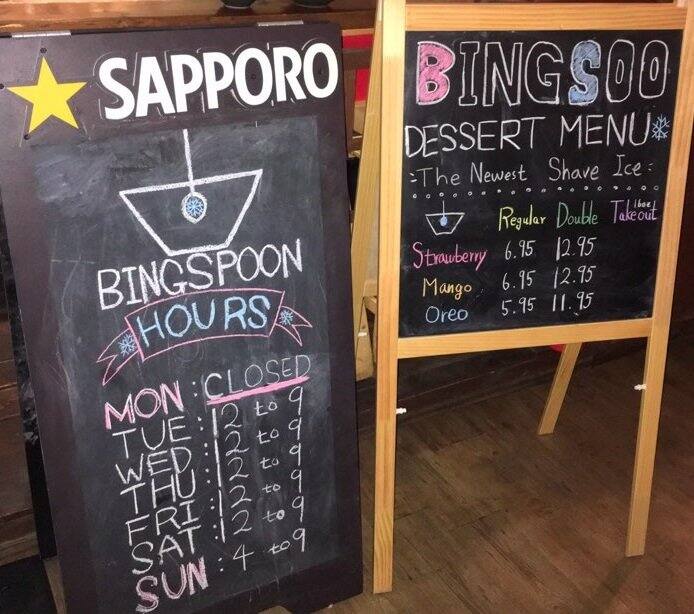 SAPPORO
BINGSPOON
HOURS
MON : CLOSED
TUE : 12 to 9
WED : 12 to 9
THU : 12 to 9
FRI : 12 to 9
SAT : 12 to 9
SUN : 4 to 9
BINGSOO
DESSERT MENU
The Newest Shave Ice
Regular Double 1box Takeout
Strawberry 6.95 12.95
Mango 6.95 12.95
Oreo 5.95 11.95